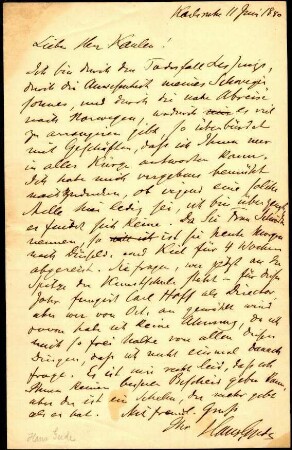 Karlsruhe 11 Juni 1880
Lieber Herr Kanlen!
Ich bin durch den Todesfall
durch die Anwesenheit meines Schwieger-
sohnes, und durch die nahe Abreise
nach Norwegen, wodurch es viel
zu arrangiren gibt, so überbürdet
mit Geschäften, dass ich Ihnen nur
in aller Kürze antworten kann.
Ich habe mich vergebens bemüht
ob irgend eine solche
Stelle hier ledig sei, ich bin überzeugt
es findet sich keine. Da Sie Frau
nennen, so ist sie heute Morgen
nach und Kiel für 4 Wochen
abgereist. Sie fragen, wer jetzt an der
Spitze der Kunstschule steht – für dieses
Jahr fungirt Carl Hoff als Director
aber wer von Oct. an gewählt wird
davon habe ich keine Ahnung, da ich
mich so frei halte von allen diesen
Dingen, dass ich nicht einmal danach
frage. Es ist mir recht leid, dass ich
Ihnen keinen besseren Bescheid geben kann,
aber der ist ein Schelm, der mehr gibt
als er hat. Mit freundl. Gruss
Ihr Hans Gude
Hans Gude